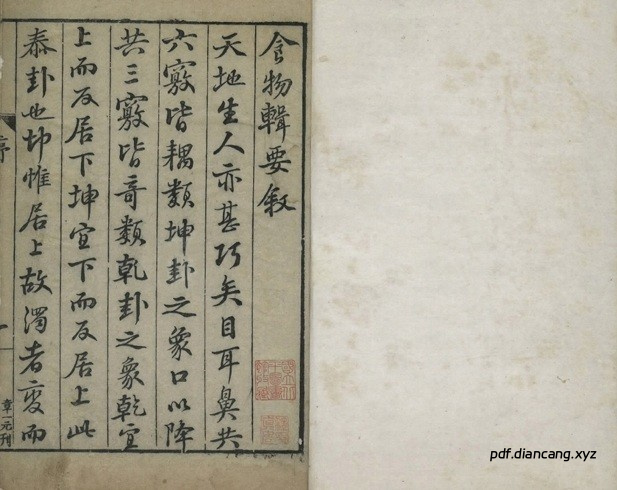 食物輯要敘
天地生人亦甚巧矣目耳鼻共
六竅皆耦類坤卦之象口以降
共三竅皆竒類乾卦之象乾宜
上而反居下坤宜下而反居上此
泰卦也坤惟居上故濁者变而
序
一
章一元刊
pdf.diancang.xyz